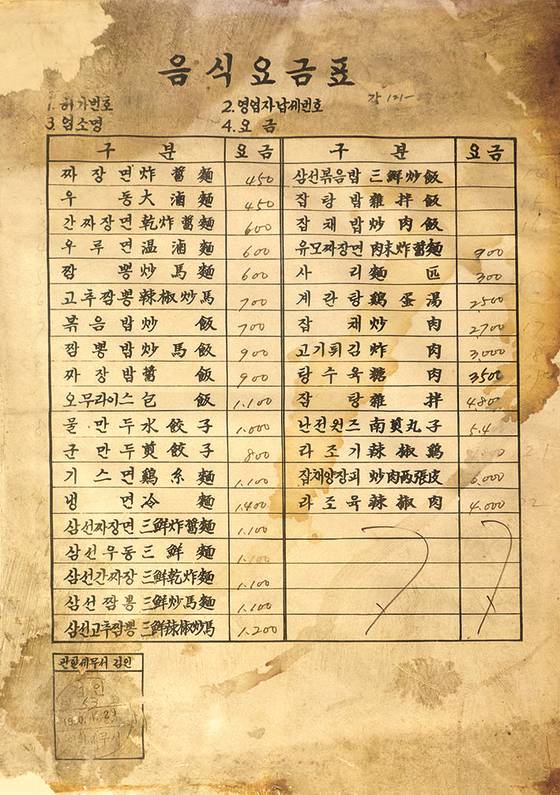 음식요금표
1. 허가번호 2. 영업자납세번호
3. 업소명 4. 요금
구 분 요금 구 분 요금
짜장면 炸醬麵 450 삼선볶음밥 三鮮炒飯
우동 大滷麵 450 잡탕밥 雜拌飯
간짜장면 乾炸醬麵 600 잡채밥 炒肉飯
우루면 温滷麵 600 유모짜장면 肉末炸醬麵 900
짬뽕 炒馬麵 600 사리 麵匹 300
고추짬뽕 辣椒炒馬 700 계란탕 鷄蛋湯 2500
볶음밥 炒飯 700 잡채 炒肉 2,700
짬뽕밥 炒馬飯 900 고기튀김 炸肉 3,000
짜장밥 醬飯 900 탕수육 糖肉 3500
오무라이스 包飯 1.100 잡탕 雜拌 4800
물만두 水餃子 1.000 난전완즈 南煎丸子 5.4
군만두 煎餃子 800 라조기 辣椒鷄
기스면 鷄糸麵 1.100 잡채양장피 炒肉両張皮 6.000
냉면 冷麵 1.400 라조육 辣椒肉 4.000
삼선짜장면 三鮮炸醬麵 1.100
삼선우동 三鮮麵 1.100
삼선간짜장 三鮮乾炸麵 1.100
삼선짬뽕 三鮮炒馬麵 1.100
삼선고추짬뽕 三鮮辣椒炒馬 1.200
관할세무서 검인